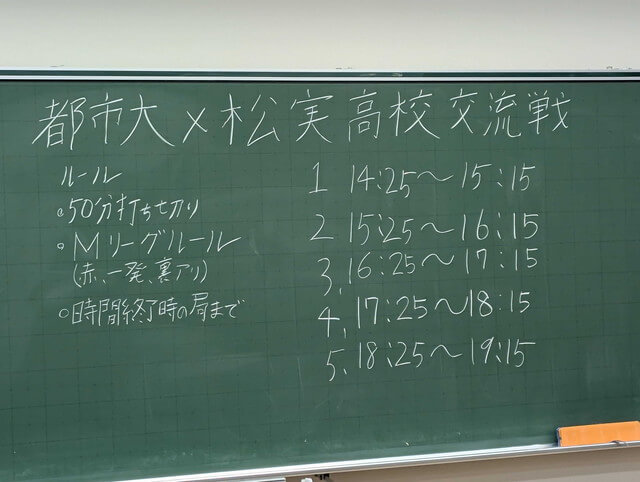 都市大×松実高校交流戦
ルール
。50分打ち切り
。Mリーグルール
(赤、一発、裏アリ)
。時間終了時の局まで
1 14:25〜15:15
2 15:25〜16:15
3. 16:25〜17:15
4. 17:25〜18:15
5. 18:25〜19:15